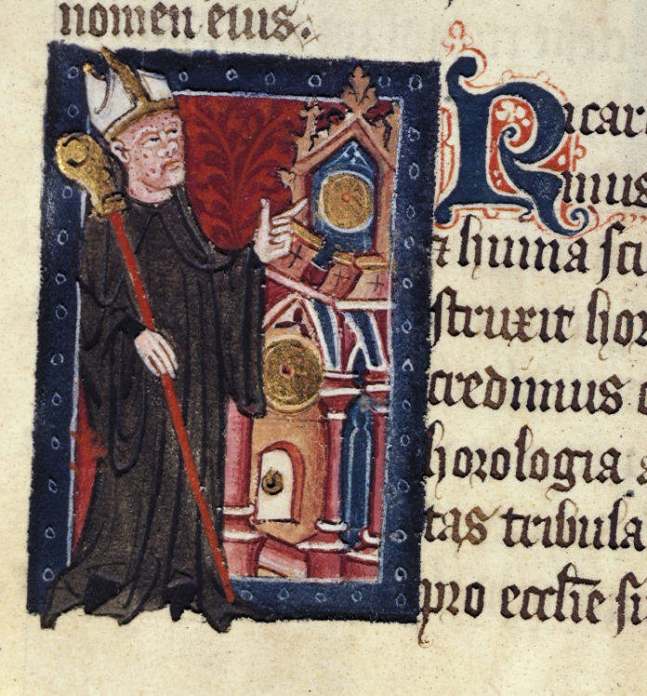 nomen eius.
Ricar
⁊ sci
struxit hor
credimus
horologia a
tas tribula
pro eccl̄ie si